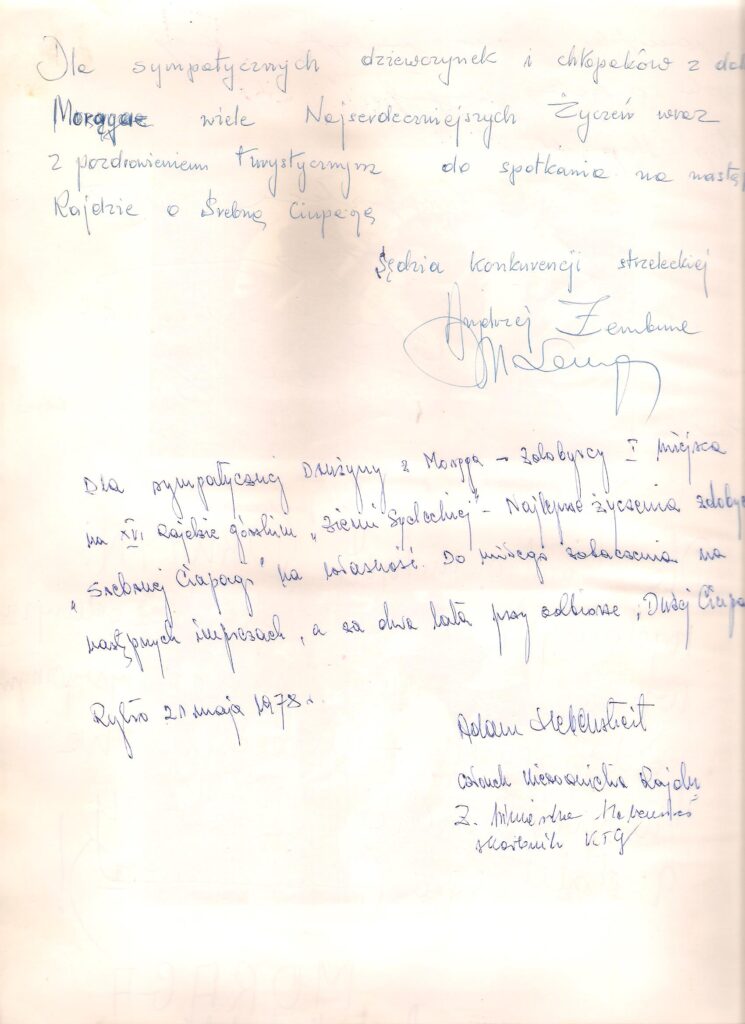 Dla sympatycznych dziewczynek i chłopaków z dal
Morąga wiele Najserdeczniejszych Życzeń wraz
z pozdrowieniem turystycznym do spotkania na nastę
Rajdzie o Srebną Ciupagę
Sędzia konkurencji strzeleckiej
Andrzej
Dla sympatycznej Drużyny z Morąga – zdobywcy I miejsca
na XVI Rajdzie górskim „Ziemi Sądeckiej" – Najlepsze życzenia zdoby
„Srebrnej Ciupagi" na własność. Do miłego zobaczenia na
następnych imprezach, a za dwa lata przy odbiorze „Dużej Ciupa
Rytro 21 maja 1978 r.
Adam
członek kierownictwa Rajdu
Z.
skarbnik KTG
MORĄG